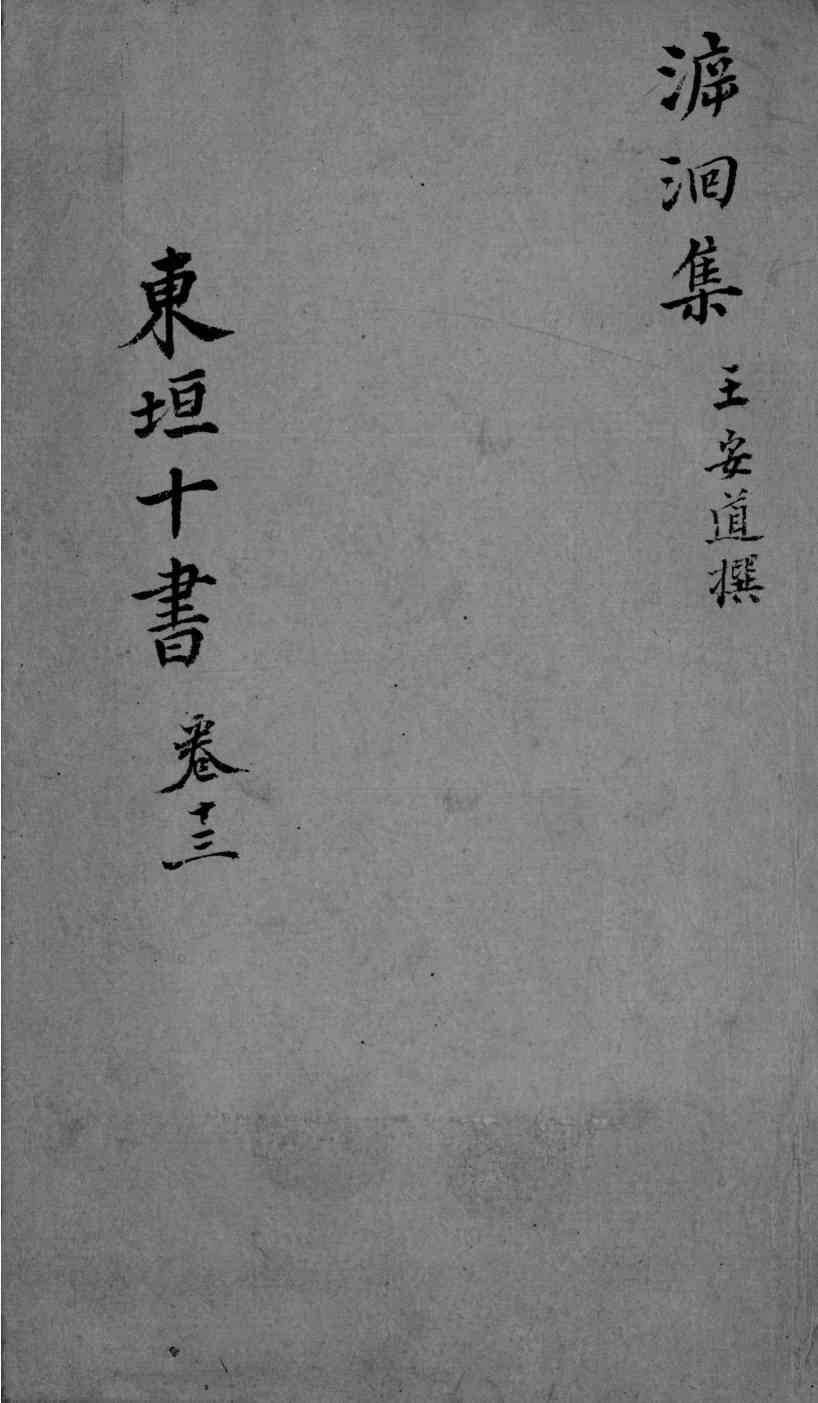 泝洄集 王安道撰
東垣十書 卷十三